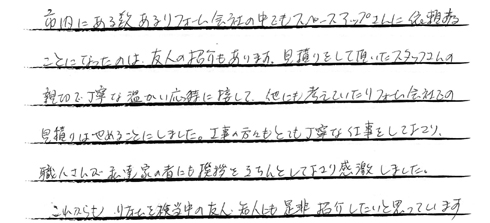 市内にある数あるリフォーム会社の中でもスペースアップさんに依頼する
ことになったのは、友人の紹介もあります。見積りをして頂いたスタッフさんの
親切で丁寧な温かい応対に接して、他にも考えていたリフォーム会社での
見積りはやめることにしました。工事の方々もとても丁寧な仕事をしており、
職人さんが 家の者にも挨拶をきちんとしており感激しました。
これからも、リフォームを検討中の友人、知人にも是非紹介したいと思っています